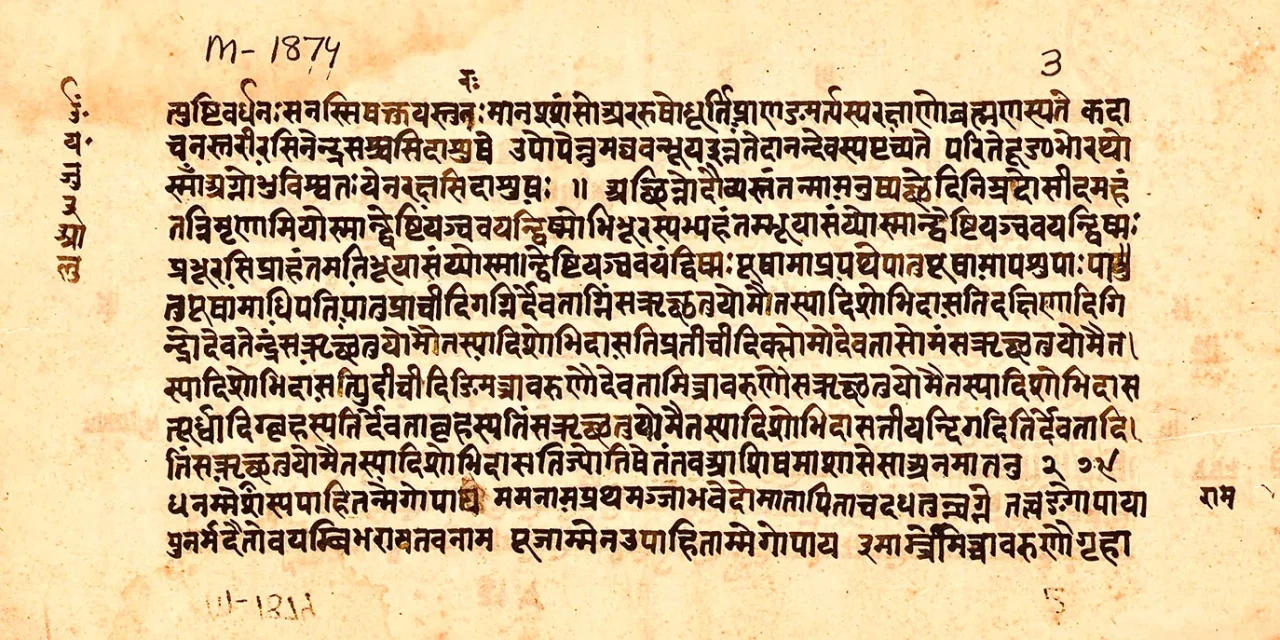 M-1874
3
वः
त्पुष्टिवर्धनःसनस्सिषक्तुयस्तुतःमानश्शंसोअररुषोधूर्तिप्राणङ्मर्त्यस्यरक्षाणोब्रह्मणस्पते कदा
चनस्तरीरसिनेन्द्रसश्चसिदाशुषे उपोपेन्नुमघवन्भूयइन्नुतेदानन्देवस्यपृच्यते परितेदूडभोरथो
स्माँअश्नोतुविश्वतःयेनरक्षसिदाशुषः ॥ अच्छिन्नोदैव्यस्तंतन्मामनुष्यच्छेदिनिभ्रष्टोसीदमहं
तन्निमृणामियोस्मान्द्वेष्टियञ्चवयन्द्विष्मोभिभूरस्यभ्यहंतम्भूयासंय्योस्मान्द्वेष्टियञ्चवयन्द्विष्मः
प्रभूरसिप्राहंतमतिभूयासंय्योस्मान्द्वेष्टियञ्चवयंद्विष्मःपूषामाप्रपथेपातुपूषामापशुपाःपा
तुपूषामाधिपतिःपातुप्राचीदिगग्निर्देवताग्निंसऋच्छतुयोमैतस्यादिशोभिदासतिदक्षिणादिगि
न्द्रोदेवतेन्द्रंसऋच्छतुयोमैतस्यादिशोभिदासतिप्रतीचीदिक्सोमोदेवतासोमंसऋच्छतुयोमैत।
स्यादिशोभिदासत्युदीचीदिङ्मित्रावरुणौदेवतामित्रावरुणौसऋच्छतुयोमैतस्यादिशोभिदास
त्यूर्ध्वादिग्बृहस्पतिर्देवताबृहस्पतिंसऋच्छतुयोमैतस्यादिशोभिदासतीयन्दिगदितिर्देवतादि।
तिंसऋच्छतुयोमैतस्यादिशोभिदासतिज्योतिषेतंतवआशिषमाशासेसाअनमातनु २ १९
धनम्मेशंस्यपाहितन्मेगोपाय ममनामप्रथमञ्जातवेदोमातापिताचदधतुर्न्वग्रे तत्त्वङ्गोपाया
पुनर्मदैतोवयम्बिभरामतवनाम पूजाम्मेनउपाहिताम्मेगोपाय इमाम्मेमित्रावरुणौगृहा
राम